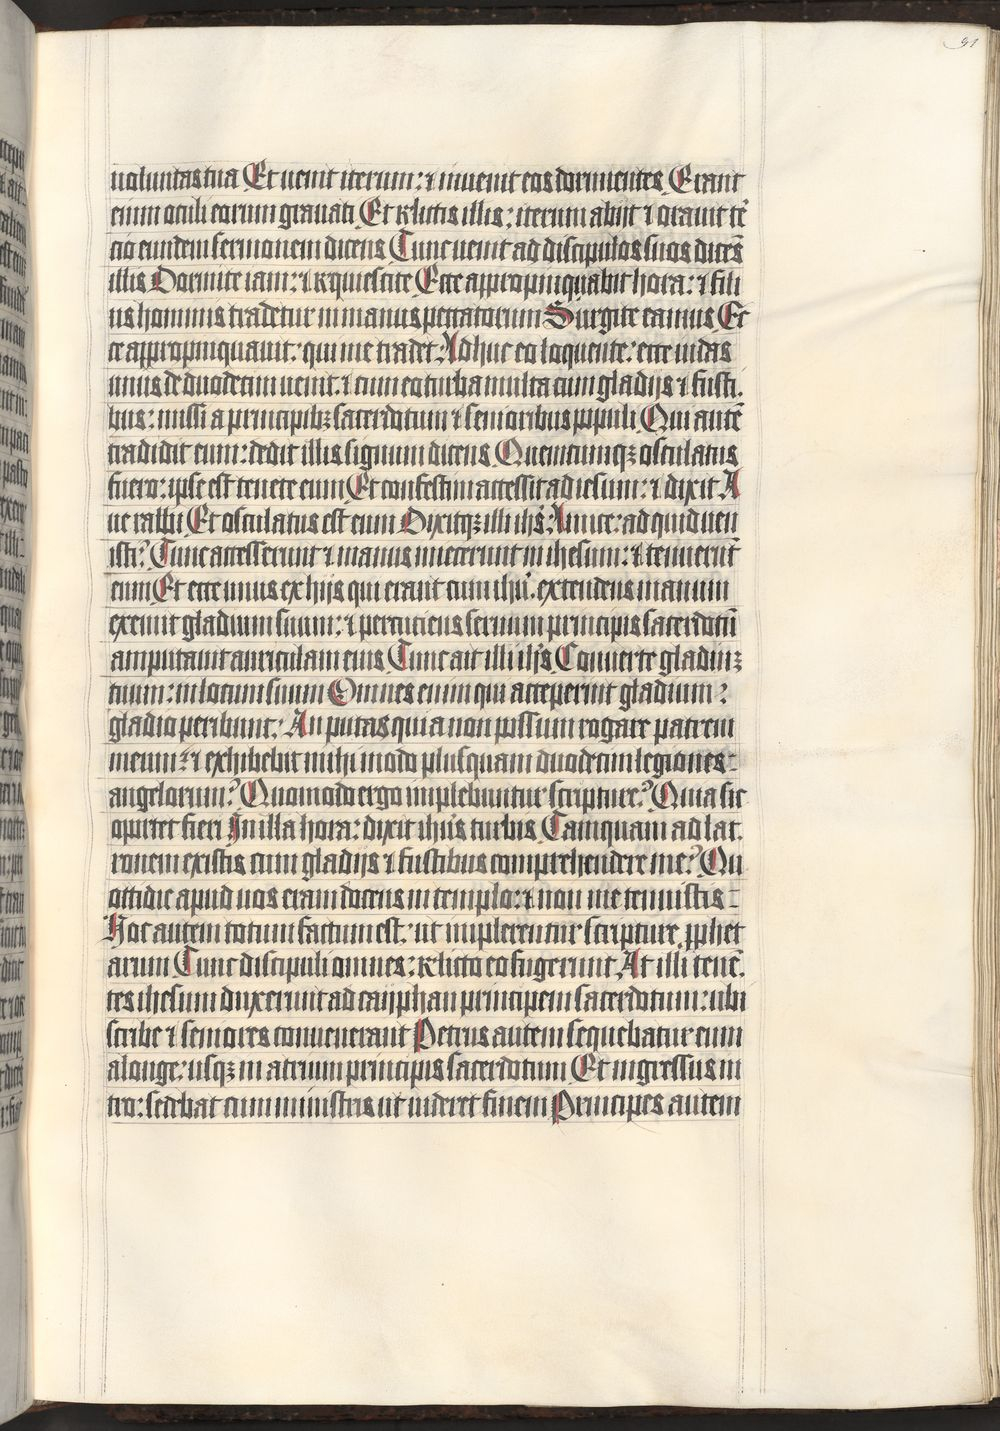 91
uoluntas tua Et uenit iterum: ⁊ inuenit eos dormientes Erant
enim oculi eorum grauati Et relictis illis: iterum abijt ⁊ orauit te᷑
cio eundem sermonem dicens Tunc uenit ad discipulos suos dice̅s
illis Dormite iam: ⁊ requiescite Ecce appropinquabit hora: ⁊ fili
us hominis tradetur in manus peccatorum Surgite eamus Ec
ce appropinquauit: qui me tradet: Adhuc eo loquente: ecce iudas
unus de duodecim uenit. ⁊ cum eo turba multa cum gladijs ⁊ fusti.
bus: missi a principibꝫ sacerdotum ⁊ senioribus populi Qui aute̅
tradidit eum: dedit illis signum dicens Quemcumqꝫ osculatus
fuero: ipse est tenete eum Et confestim accessit ad iesum: ⁊ dixit A
ue rabbi Et osculatus est eum Dixitqꝫ illi ihs̅: Amice: ad quid uen
isti? Tunc accesserunt ⁊ manus iniecerunt in ihesum: ⁊ tenueru̅t
eum Et ecce unus ex hijs qui erant cum ihu̅. extendens manum
exemit gladium suum: ⁊ percutiens seruum principis sacerdotu̅
amputauit auriculam eius Tunc ait illi ih̅s Conuerte gladiuꝫ
tuum: in locum suum Omnes enim qui acceperint gladium:
gladio peribunt: An putas quia non possum rogare patrem
meum: ⁊ exhibebit mihi modo plusquam duodecim legiones:
angelorum? Quomodo ergo implebuntur scripture? Quia sic
oportet fieri In illa hora: dixit ihus̅ turbis Tamquam ad lat.
ronem existis cum gladijs ⁊ fustibus comprehendere me? Qu
ottidie apud uos eram docens in templo: ⁊ non me tenuistis:
Hoc autem totum factum est. ut implerentur scripture ꝓphet
arum Tunc discipuli omnes: relicto eo fugerunt At illi tene̅.
tes ihesum duxerunt ad cayphan principem sacerdotum: ubi
scribe ⁊ seniores conuenerant Petrus autem sequebatur eum
alonge: usqꝫ in atrium principis sacerdotum Et ingressus in
tro: sedebat cum ministris ut uideret finem Principes autem